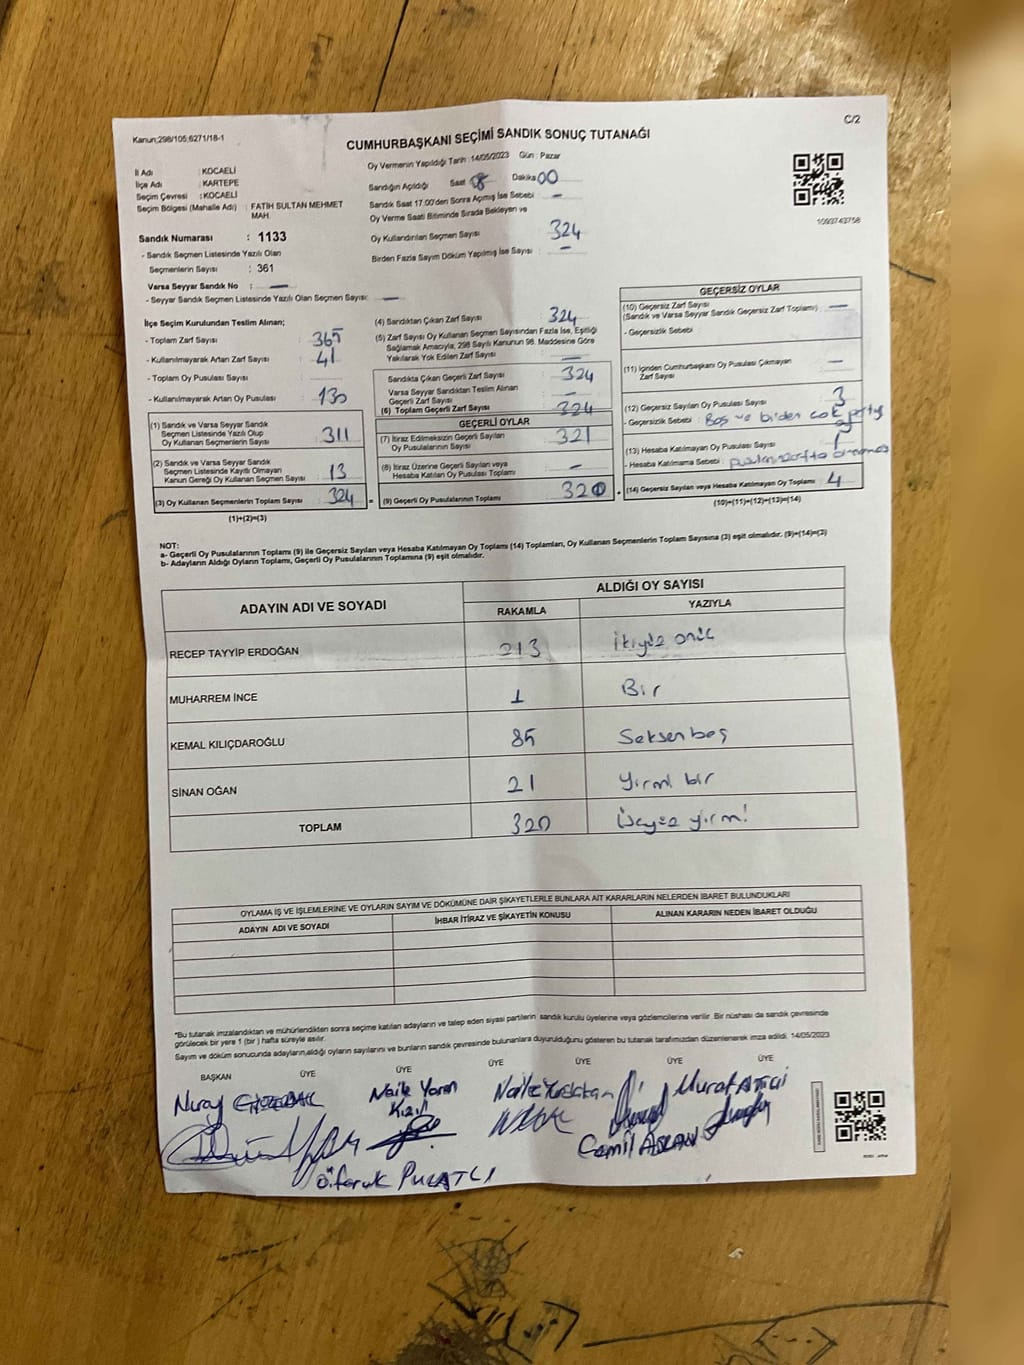 Kanun;298/105;6271/18-1
CUMHURBAŞKANI SEÇİMİ SANDIK SONUÇ TUTANAĞI
C/2
İl Adı : KOCAELİ
İlçe Adı : KARTEPE
Seçim Çevresi : KOCAELİ
Seçim Bölgesi (Mahalle Adı) : FATİH SULTAN MEHMET
MAH.
Sandık Numarası : 1133
- Sandık Seçmen Listesinde Yazılı Olan
Seçmenlerin Sayısı : 361
Varsa Seyyar Sandık No : —
- Seyyar Sandık Seçmen Listesinde Yazılı Olan Seçmen Sayısı: —
Oy Vermenin Yapıldığı Tarih : 14/05/2023 Gün : Pazar
Sandığın Açıldığı Saat Dakika 00
Sandık Saat 17.00'den Sonra Açılmış İse Sebebi —
Oy Verme Saati Bitiminde Sırada Bekleyen ve
Oy Kullandırılan Seçmen Sayısı 324
Birden Fazla Sayım Döküm Yapılmış İse Sayısı : —
1093743758
İlçe Seçim Kurulundan Teslim Alınan;
- Toplam Zarf Sayısı : 365
- Kullanılmayarak Artan Zarf Sayısı : 41
- Toplam Oy Pusulası Sayısı :
- Kullanılmayarak Artan Oy Pusulası : 130
(1) Sandık ve Varsa Seyyar Sandık
Seçmen Listesinde Yazılı Olup
Oy Kullanan Seçmenlerin Sayısı 311
(2) Sandık ve Varsa Seyyar Sandık
Seçmen Listesinde Kayıtlı Olmayan
Kanun Gereği Oy Kullanan Seçmen Sayısı 13
(3) Oy Kullanan Seçmenlerin Toplam Sayısı 324
(1)+(2)=(3)
(4) Sandıktan Çıkan Zarf Sayısı 324
(5) Zarf Sayısı Oy Kullanan Seçmen Sayısından Fazla İse, Eşitliği
Sağlamak Amacıyla, 298 Sayılı Kanunun 98. Maddesine Göre
Yakılarak Yok Edilen Zarf Sayısı —
Sandıkta Çıkan Geçerli Zarf Sayısı 324
Varsa Seyyar Sandıktan Teslim Alınan
Geçerli Zarf Sayısı —
(6) Toplam Geçerli Zarf Sayısı 324
GEÇERLİ OYLAR
(7) İtiraz Edilmeksizin Geçerli Sayılan
Oy Pusulalarının Sayısı 321
(8) İtiraz Üzerine Geçerli Sayılan veya
Hesaba Katılan Oy Pusulası Toplamı —
(9) Geçerli Oy Pusulalarının Toplamı 320
GEÇERSİZ OYLAR
(10) Geçersiz Zarf Sayısı
(Sandık ve Varsa Seyyar Sandık Geçersiz Zarf Toplamı) : —
- Geçersizlik Sebebi :
(11) İçinden Cumhurbaşkanı Oy Pusulası Çıkmayan
Zarf Sayısı —
(12) Geçersiz Sayılan Oy Pusulası Sayısı 3
- Geçersizlik Sebebi : Boş ve birden çok
(13) Hesaba Katılmayan Oy Pusulası Sayısı
- Hesaba Katılmama Sebebi :
(14) Geçersiz Sayılan veya Hesaba Katılmayan Oy Toplamı 4
(10)+(11)+(12)+(13)=(14)
NOT:
a- Geçerli Oy Pusulalarının Toplamı (9) ile Geçersiz Sayılan veya Hesaba Katılmayan Oy Toplamı (14) Toplamları, Oy Kullanan Seçmenlerin Toplam Sayısına (3) eşit olmalıdır. (9)+(14)=(3)
b- Adayların Aldığı Oyların Toplamı, Geçerli Oy Pusulalarının Toplamına (9) eşit olmalıdır.
ADAYIN ADI VE SOYADI ALDIĞI OY SAYISI
RAKAMLA YAZIYLA
RECEP TAYYİP ERDOĞAN 213 ikiyüz onüç
MUHARREM İNCE 1 Bir
KEMAL KILIÇDAROĞLU 85 Seksenbeş
SİNAN OĞAN 21 Yirmi bir
TOPLAM 320 üçyüz yirmi
OYLAMA İŞ VE İŞLEMLERİNE VE OYLARIN SAYIM VE DÖKÜMÜNE DAİR ŞİKAYETLERLE BUNLARA AİT KARARLARIN NELERDEN İBARET BULUNDUKLARI
ADAYIN ADI VE SOYADI İHBAR İTİRAZ VE ŞİKAYETİN KONUSU ALINAN KARARIN NEDEN İBARET OLDUĞU
*Bu tutanak imzalandıktan ve mühürlendikten sonra seçime katılan adayların ve talep eden siyasi partilerin sandık kurulu üyelerine veya gözlemcilerine verilir. Bir nüshası da sandık çevresinde
görülecek bir yere 1 (bir) hafta süreyle asılır.
Sayım ve döküm sonucunda adayların,aldığı oyların sayılarını ve bunların sandık çevresinde bulunanlara duyurulduğunu gösteren bu tutanak tarafımızdan düzenlenerek imza edildi. 14/05/2023
BAŞKAN ÜYE ÜYE ÜYE ÜYE ÜYE ÜYE
Nuray
Naile Yaren
Kızıl
Murat ATICI
Cemil ASLAN
Ö.faruk PULATLI